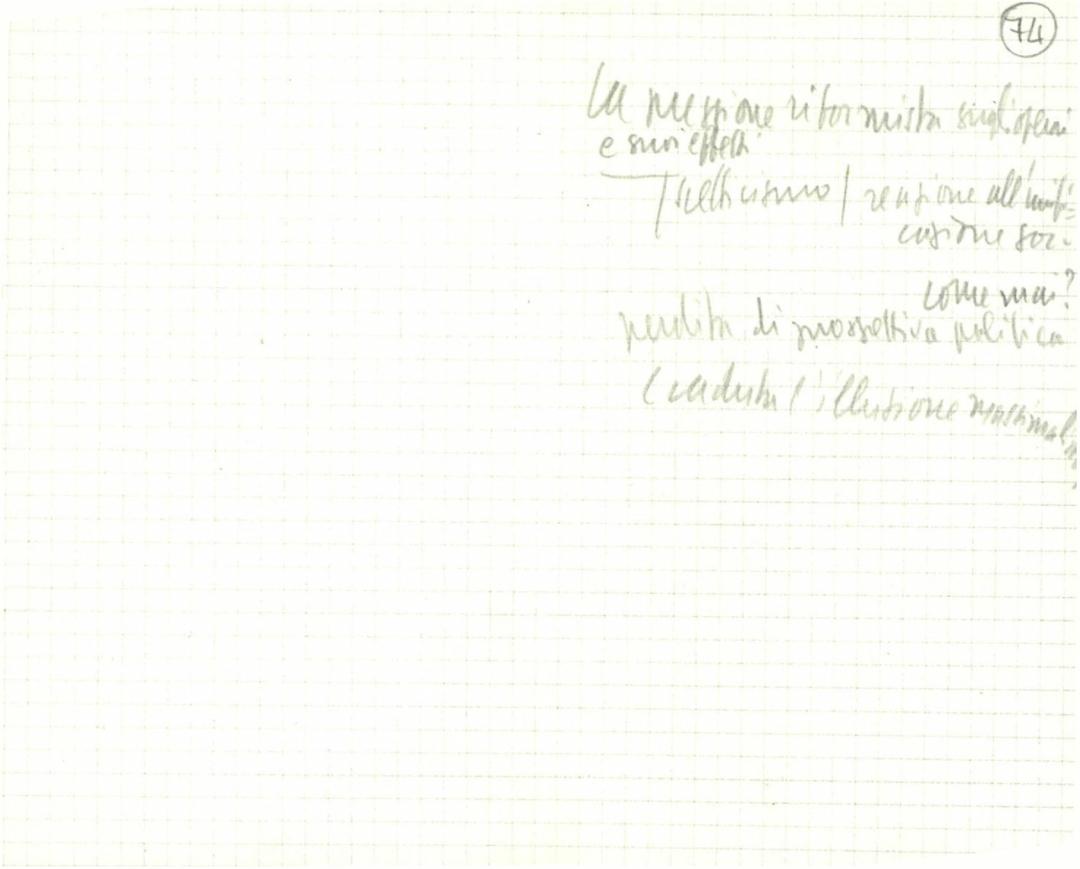 74
La pressione riformista sugli operai
e suoi effetti
scetticismo / reazione all'unifi-
cazione soc.
come mai?
perdita di prospettiva politica
(caduta l'illusione massimal